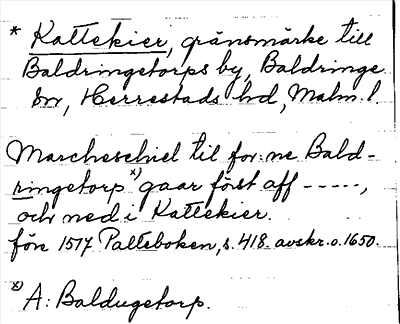 * Kattekier, gränsmärke till
Baldringetorps by, Baldringe
sn, Herrestads hd, Malm. l.
Marcheschiel til for:ne Bald-
ringetorp *) gaar föst aff -----,
och ned i Kattekier.
före 1517 Palteboken, s. 418. avskr. o. 1650.
*) A: Baldugetorp.